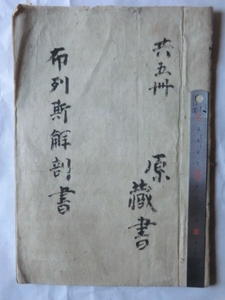 共五冊
原蔵書
布列斯解剖書